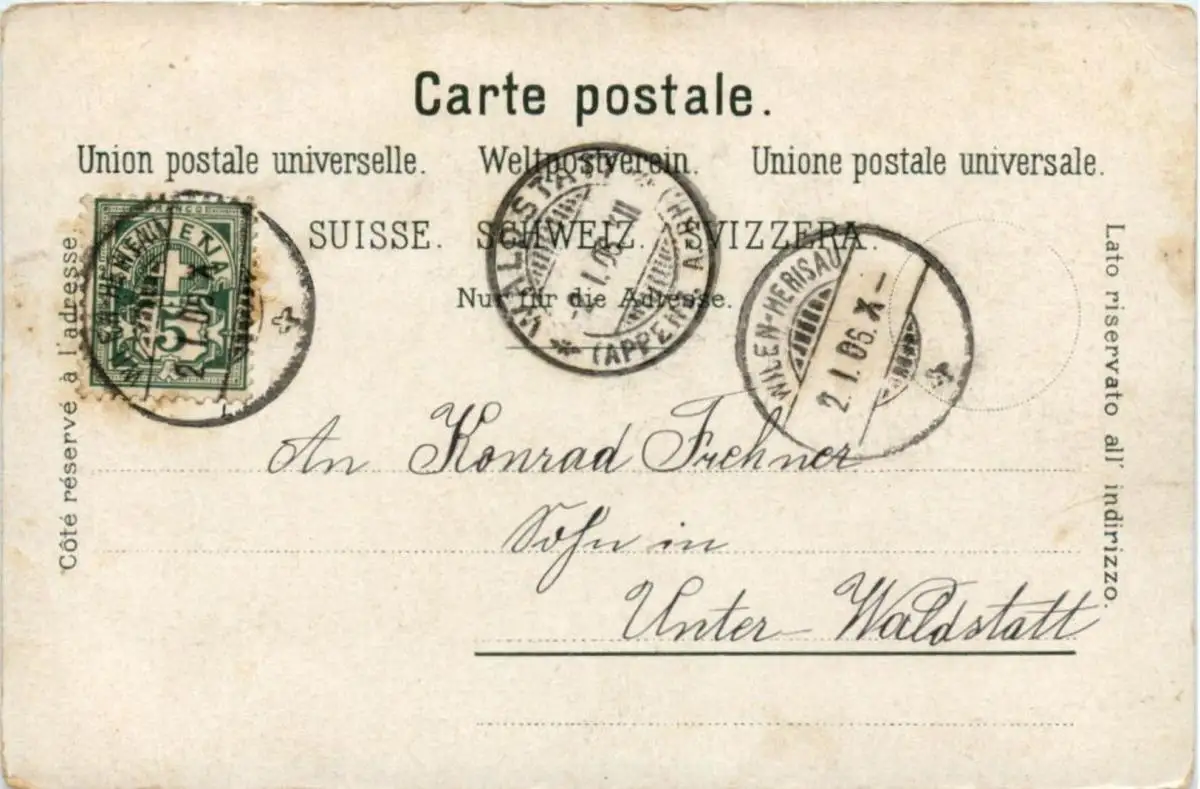 Carte postale.
Union postale universelle. Weltpostverein. Unione postale universale.
SUISSE. SCHWEIZ. SVIZZERA.
Nur für die Adresse.
Côté réservé à l'adresse.
Lato riservato all' indirizzo.
FRANCO
HELVETIA
5
WALDSTATT
2.I.06.XII
(APPENZ. A.RH.)
WILEN-HERISAU
2.I.06.X-
WILEN-HERISAU
2.I.06.X-
An Konrad Frehner
Sohn in
Unter Waldstatt